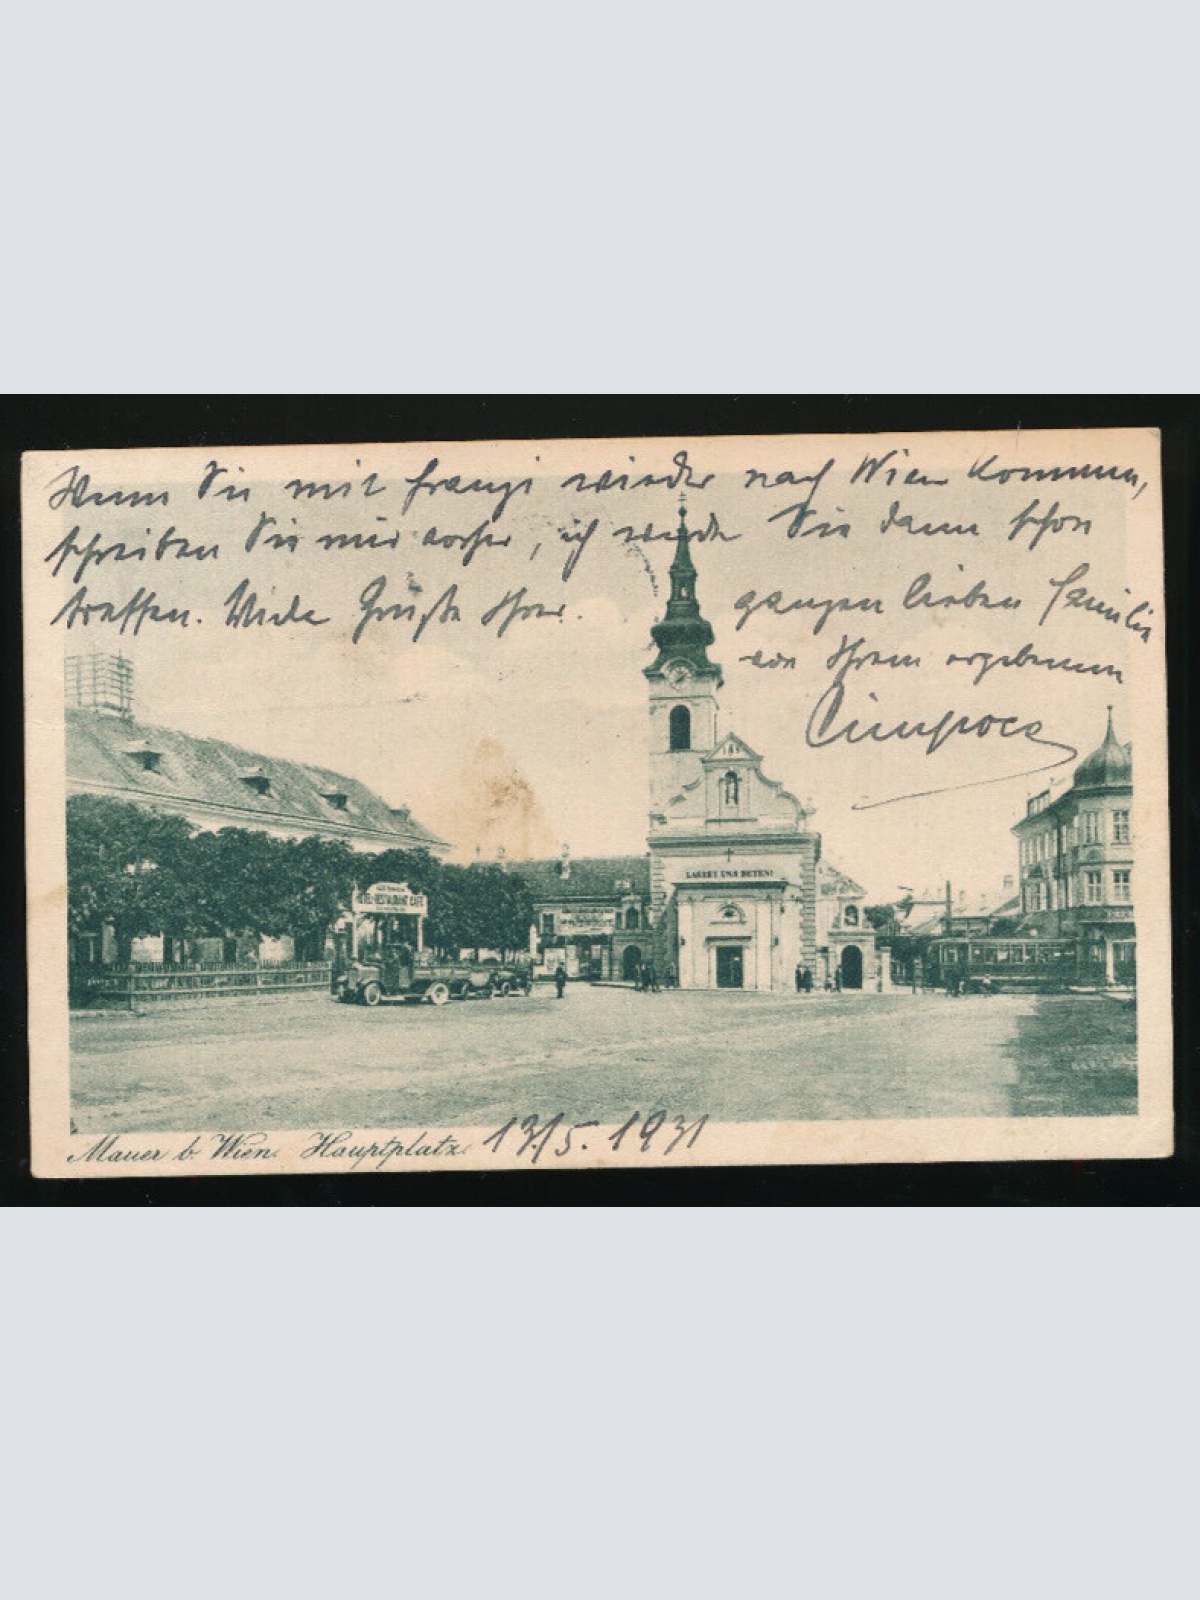 Wenn Sie mit Franzi wieder nach Wien kommen,
schreiben Sie mir vorher, ich werde Sie dann schon
treffen. Viele Grüße Ihrer
ganzen lieben Familie
von Ihrem ergebenen
LASSET UNS BETEN!
HOTEL-RESTAURANT CAFE
Mauer b. Wien. Hauptplatz. 13/5. 1931